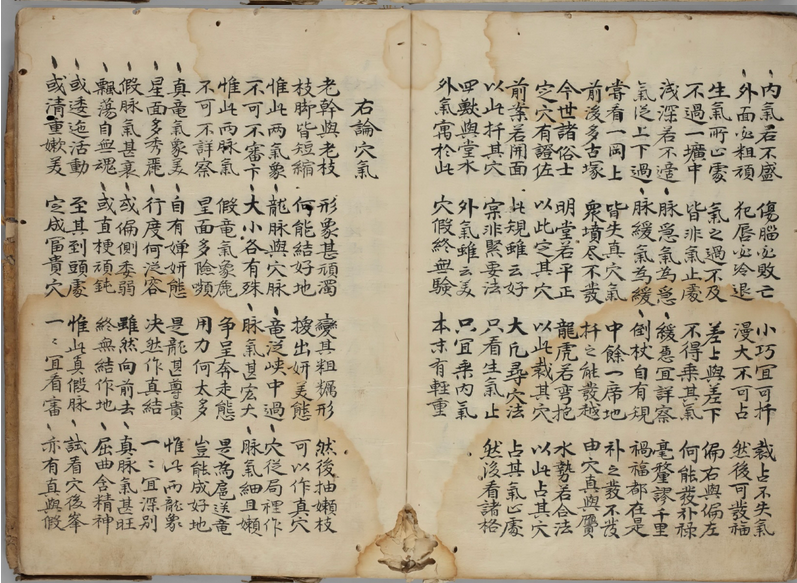 內氣若不盛 傷腦必敗亡 小巧宜可扦 裁占不失氣
外面必粗頑 犯唇必冷退 漫大不可占 然後可發福
生氣所止處 氣之過不及 差上與差下 偏右與偏左
不過一壙中 皆非氣止處 不得乘其氣 何能發補祿
淺深若不遵 脉急氣為急 緩急宜詳察 毫釐謬千里
氣從上下過 脉緩氣為緩 倒杖自有規 禍福都在是
嘗看一岡上 皆失真穴氣 中餘一席地 補之發不發
前後多古塚 衆墳尽不發 扦之能發越 由穴真與贋
今世諸俗士 明堂若平正 龍虎若弯抱 水勢若合法
定穴有證佐 以此定其穴 以此裁其穴 以此占其穴
前案若開面 此規雖云好 大凡尋穴法 占其氣止處
以此扦其穴 寔非緊要法 只看生氣止 然後看諸格
四獸與堂水 外氣雖云美 只宜乘內氣
外氣寓於此 穴假終無驗 本末有輕重
右論穴氣
老幹與老枝 形象甚頑濁 變其粗糲形 然後抽嫩枝
枝脚皆短縮 何能結好地 換出妍美態 可以作真穴
惟此两氣象 龍脉與穴脉 竜泛峽中過 穴從局裡作
不可不審下 大小各有殊 脉氣甚宏大 脉氣細且嫩
惟此两脉氣 假竜氣象麁 爭呈奔走態 是為扈送竜
不可不詳察 星面多險頻 用力何太多 豈能成好地
真竜氣象美 自有嬋妍態 是龍甚尊貴 惟此两龍象
星面多秀麗 行度何從容 决然作真結 一〻宜深別
假脉氣甚衰 或偏側委弱 雖然向前去 真脉氣甚旺
飄蕩自無魂 或直梗頑鈍 終無結作地 屈曲含精神
或逶迤活動 至其到頭處 惟此真假脉 試看穴後峯
或清重嫩美 定成富貴穴 一〻宜看審 亦有真與假